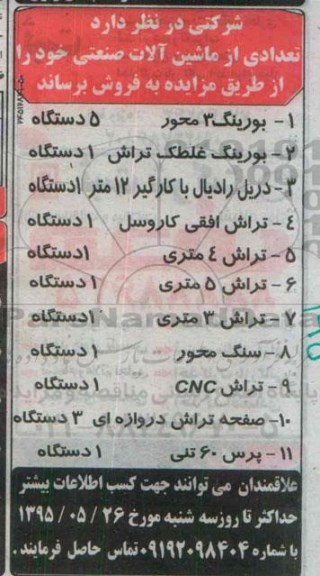 شرکتی در نظر دارد
تعدادی از ماشین آلات صنعتی خود را
از طریق مزایده به فروش برساند
۱- بورینگ ۳ محور ۵ دستگاه
۲- بورینگ غلطک تراش ۱ دستگاه
۳- دریل رادیال با کارگیر ۱۲ متر ۱ دستگاه
۴- تراش افقی کاروسل ۱ دستگاه
۵- تراش ۴ متری ۱ دستگاه
۶- تراش ۵ متری ۱ دستگاه
۷- تراش ۳ متری ۱ دستگاه
۸- سنگ محور ۱ دستگاه
۹- تراش CNC ۱ دستگاه
۱۰- صفحه تراش دروازه ای ۳ دستگاه
۱۱- پرس ۶۰ تنی ۱ دستگاه
علاقمندان می توانند جهت کسب اطلاعات بیشتر
حداکثر تا روزسه شنبه مورخ ۲۶ / ۰۵ / ۱۳۹۵
با شماره ۰۹۱۹۲۰۹۸۴۰۴ تماس حاصل فرمایند .